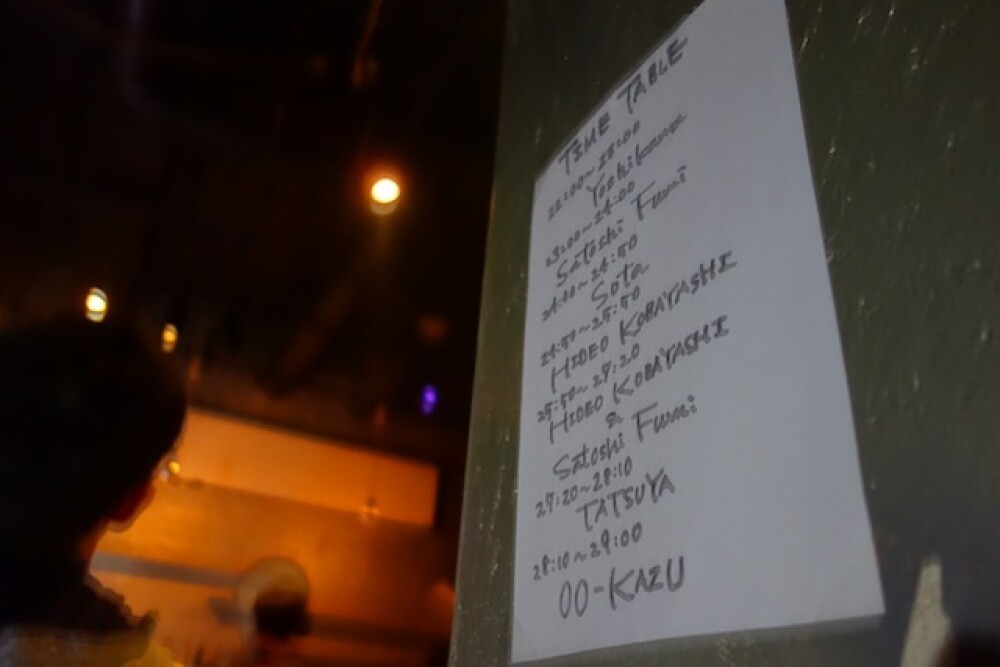 TIME TABLE
22:00~23:00
Yoshikane
23:00~24:00
Satoshi Fumi
24:00~24:50
Sota
24:50~25:50
HIDEO KOBAYASHI
25:50~27:20
HIDEO KOBAYASHI
&
Satoshi Fumi
27:20~28:10
TATSUYA
28:10~29:00
OO-KAZU